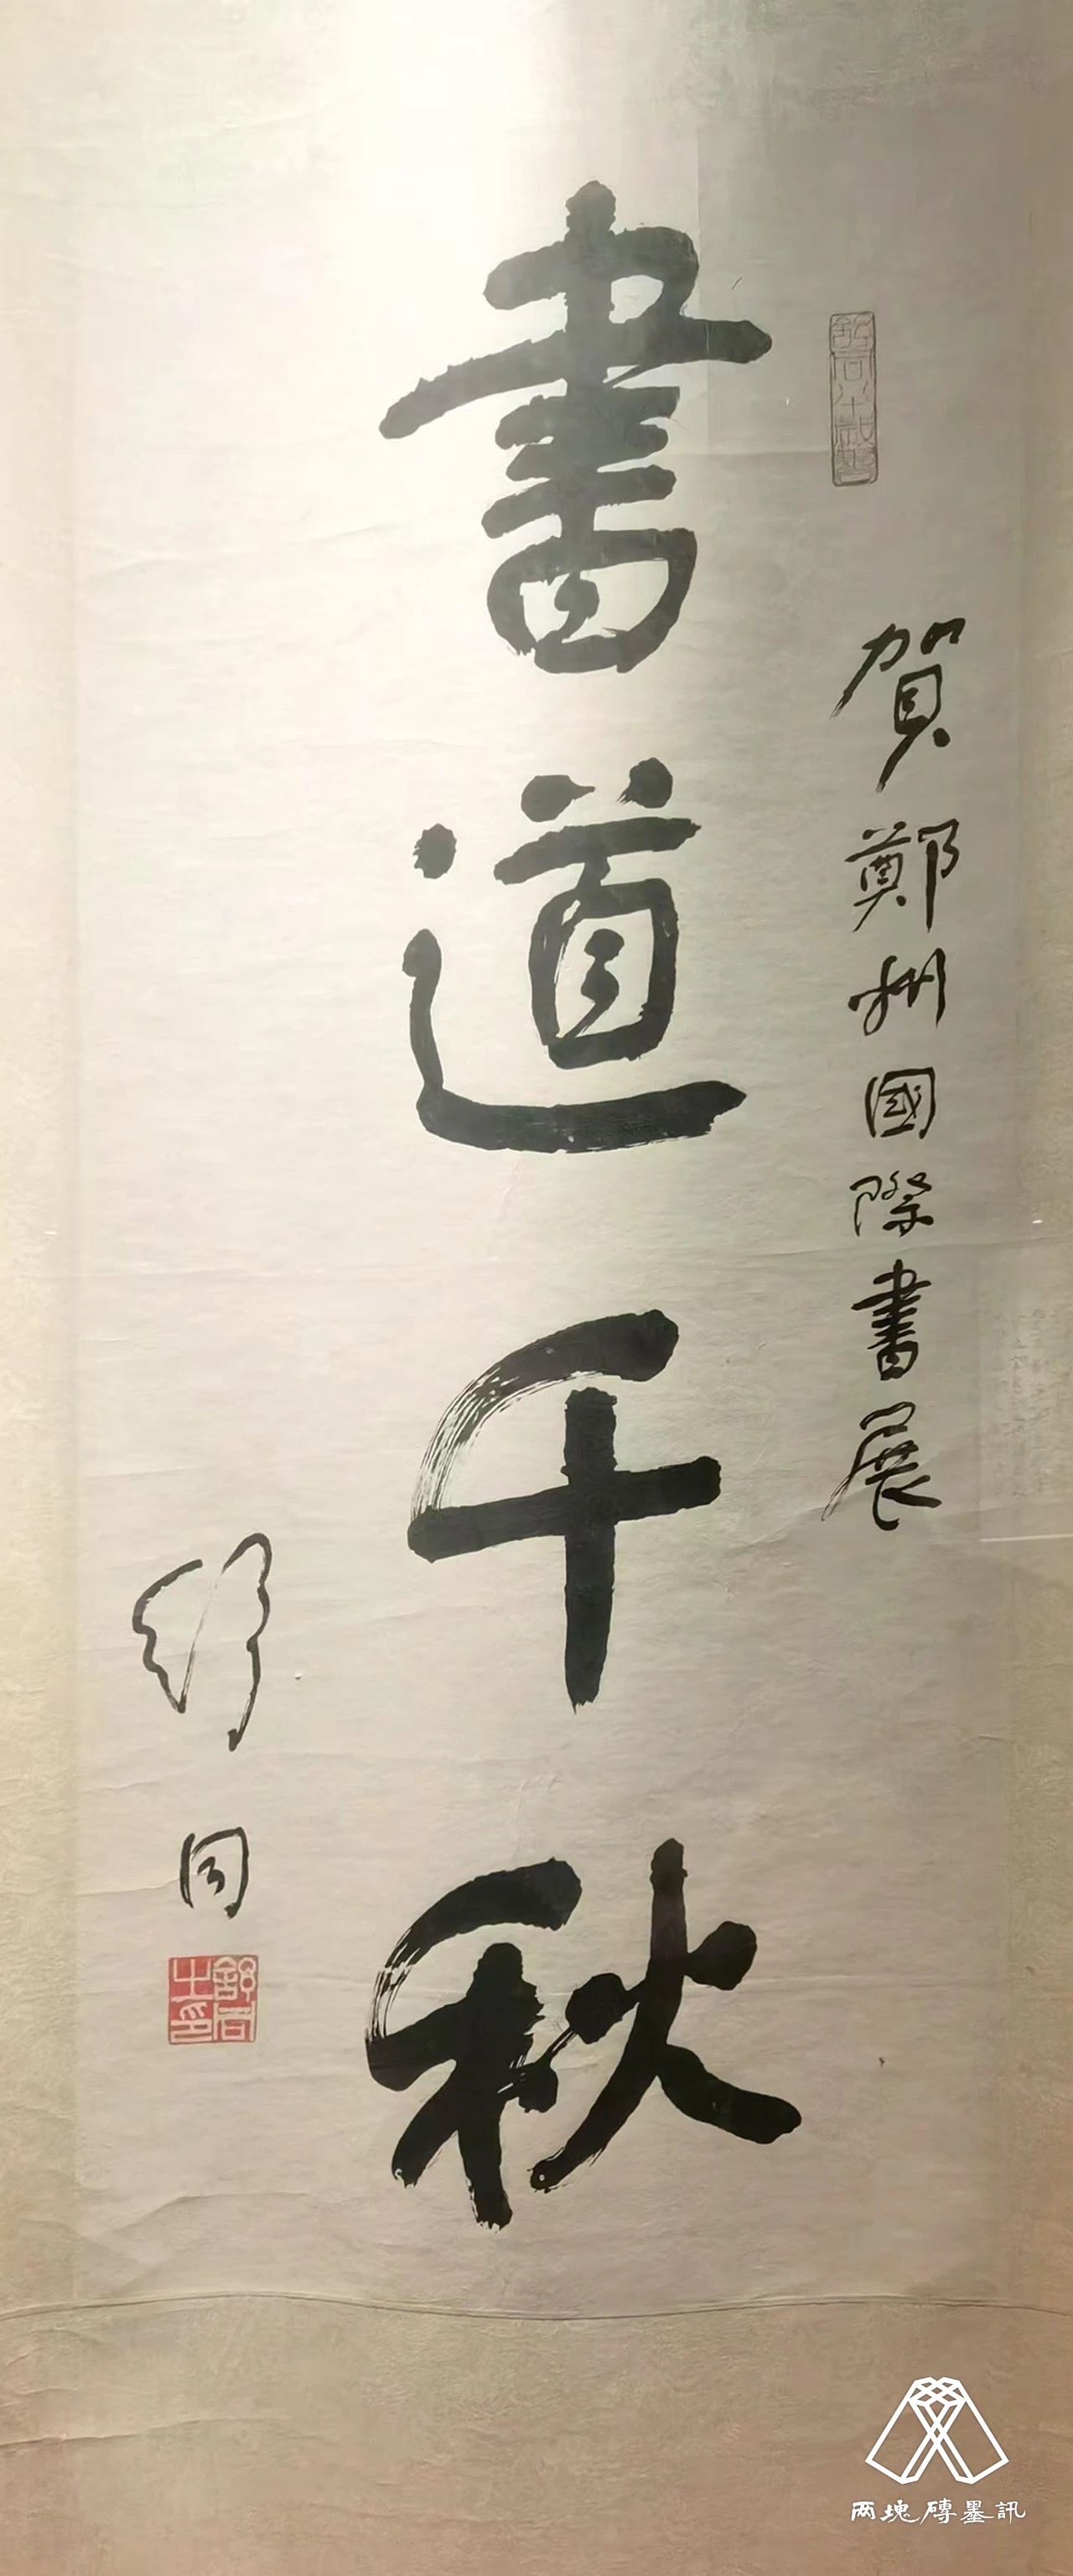 賀鄭州國際書展
書道千秋
舒同
舒同之印
两塊磚墨訊